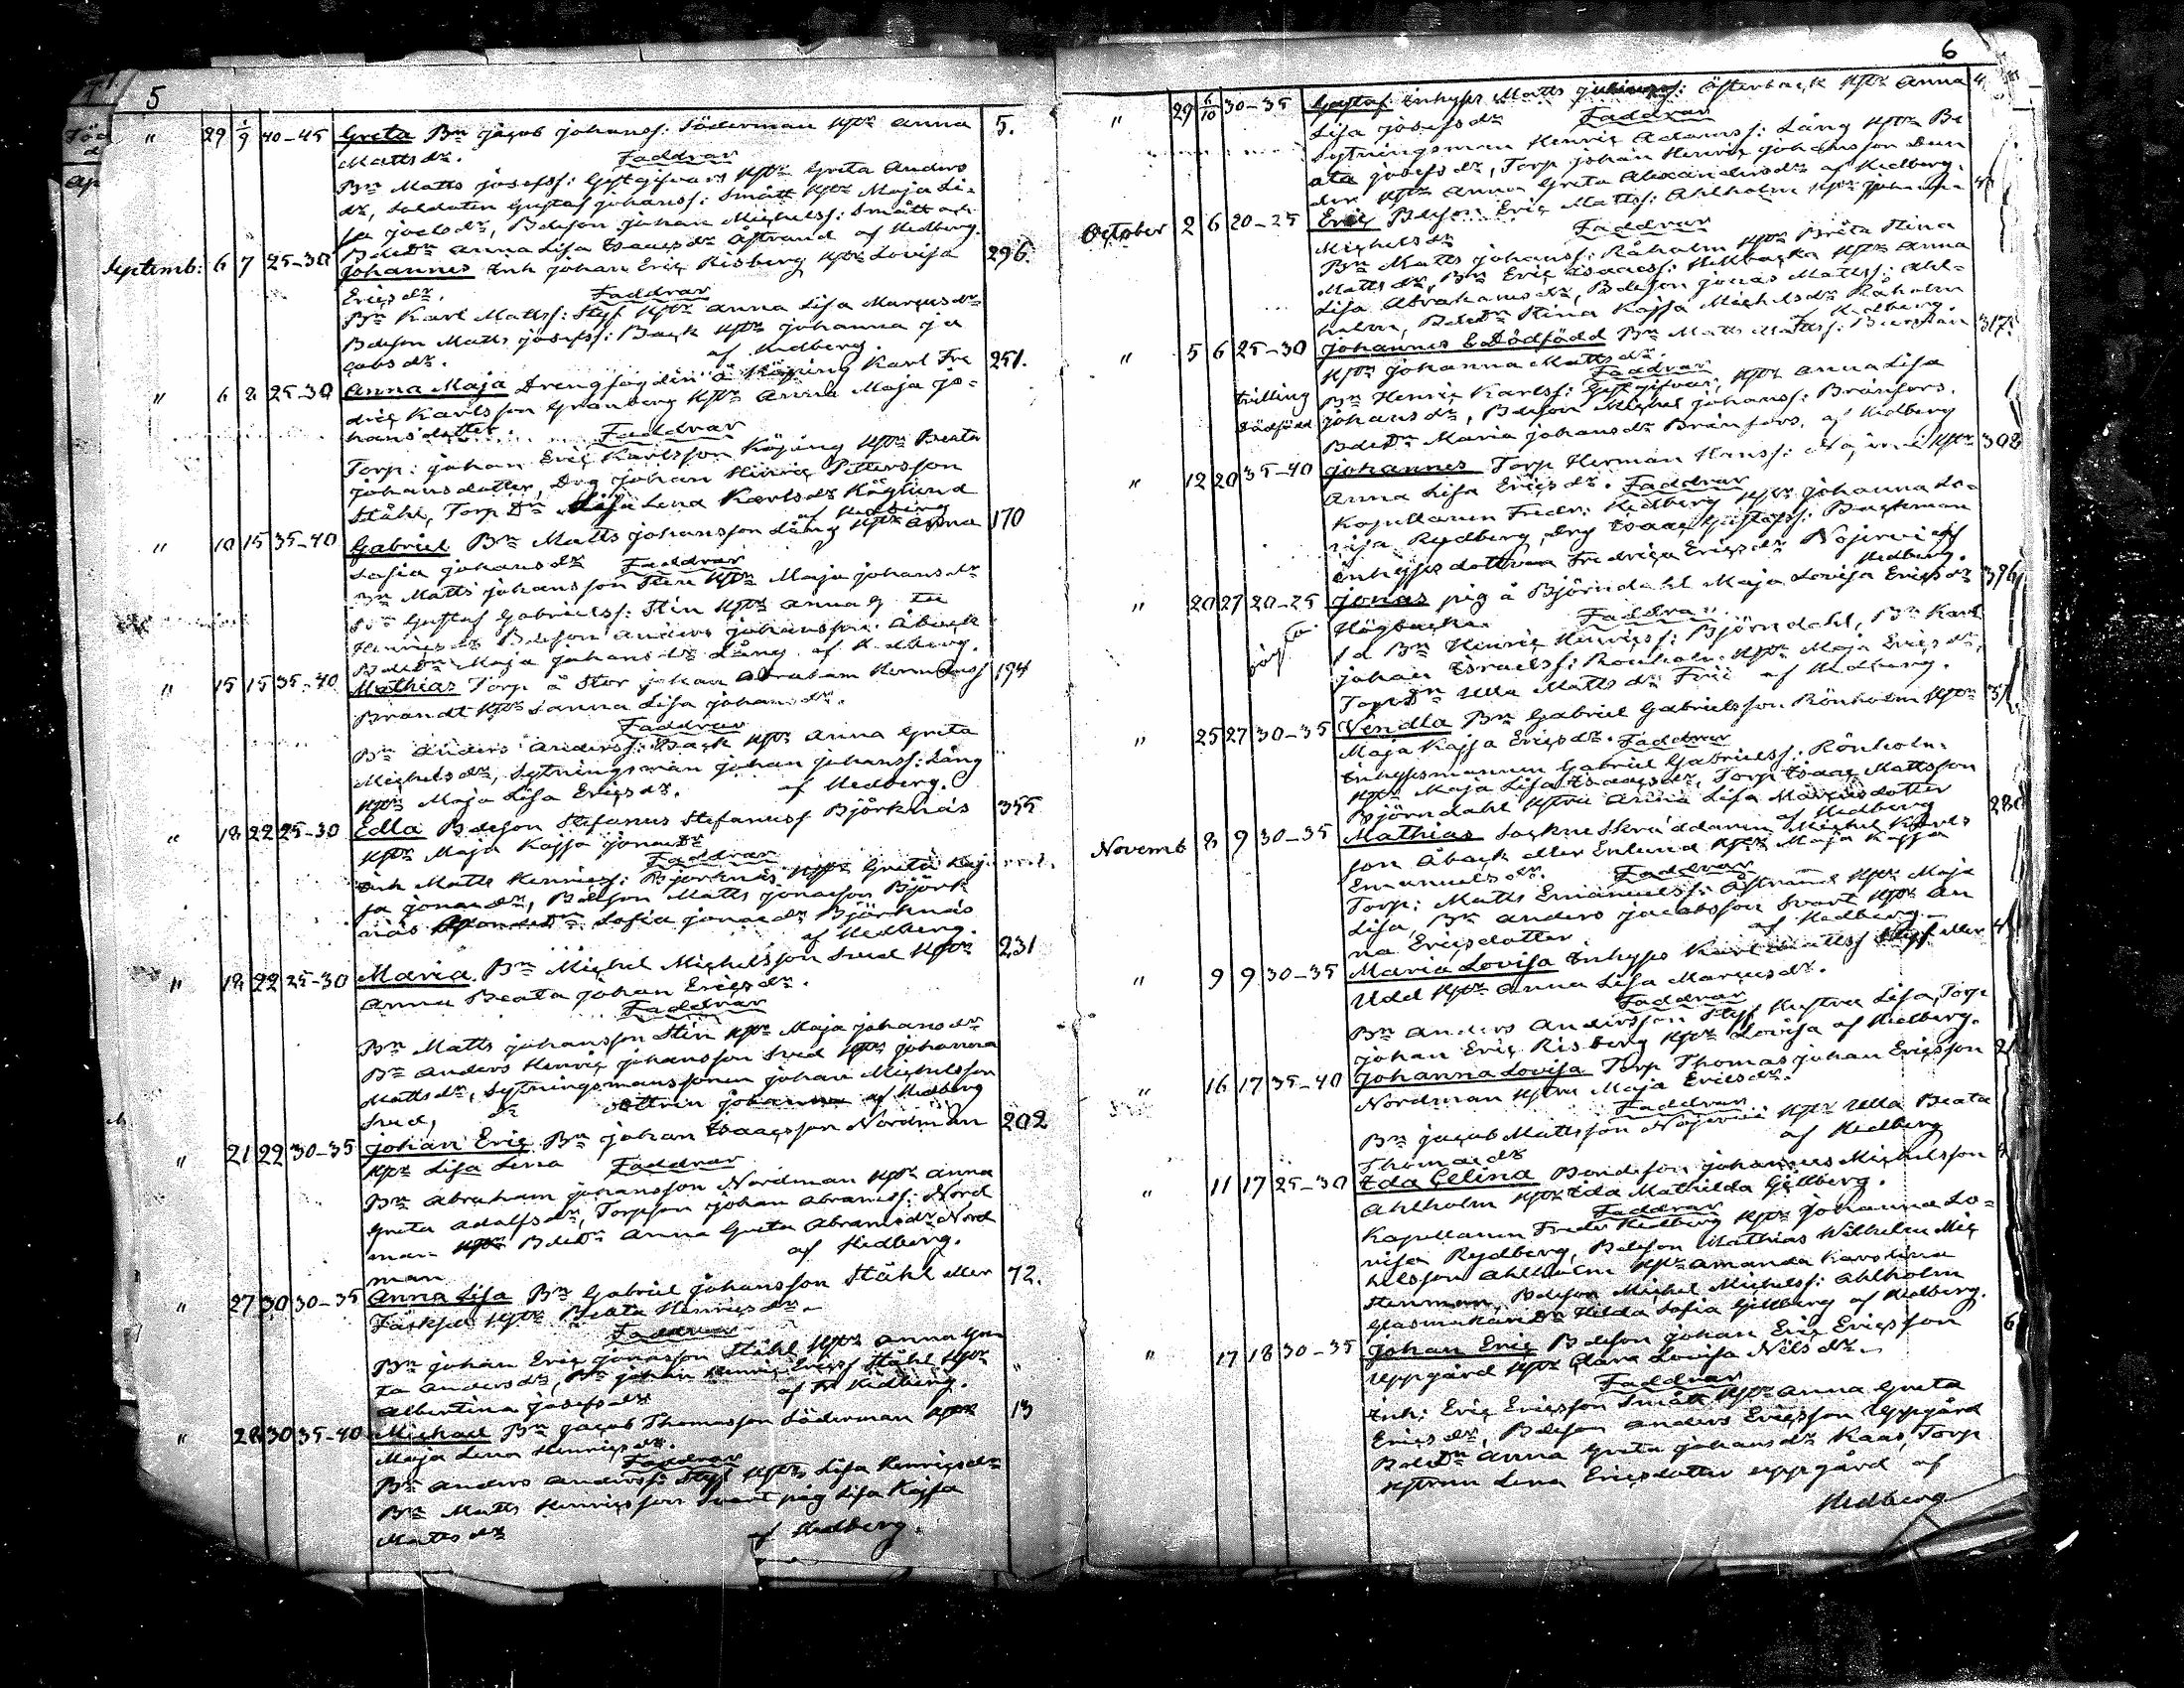 5
" 29 1/9 40-45 Greta Bn Jacob Johanss: Söderman Hstr Anna 5.
Matts dr. Faddrar
Bn Matts Josefss: Gästgifvars Hstr Greta Anders
dr, Soldaten Gustaf Johanss: Smått Hstr Maja Li-
sa Joels dr, Bdeson Johan Michelss: Smått och
BdeDr Anna Lisa Isacs dr Åstrand af Hedberg.
Septemb: 6 7 25-30 Johannes Inh Johan Eric Risberg Hstr Lovisa 296.
Erics dr. Faddrar
Bn Karl Matts: Styf Hstr Anna Lisa Marcus dr
Bdeson Matts Josefss: Back Hstr Johanna Ja
cobs dr. af Hedberg.
" 6 8 25-30 Anna Maja Drengfogdin å Köping Karl Fre 251.
dric Karlsson Granberg Hstr Anna Maja Jo-
hansdotter. Faddrar
Torp: Johan Eric Karlsson Köping Hstr Beata
Johansdotter, Drg Johan Henric Pettersson
Ståhl, Torp Dr Lena Karls dr Höglund
af Hedberg
" 10 15 35-40 Gabriel Bn Matts Johansson Lång Hstr Anna 170
Sofia Johans dr Faddrar
Bn Matts Johansson Stin Hstr Maja Johans dr
Bn Gustaf Gabrielss: Stin Hstr Anna G
Henrics dr Bdeson Anders Johansson Åback
BdeDr Maja Johans dr Lång af Hedberg.
" 15 15 35-40 Mathias Torp å Stor Johan Abraham Hermanss 194
Brandt Hstr Sanna Lisa Johans dr.
Faddrar
Bn Anders Anderss: Back Hstr Anna Greta
Michels dr, Sytningsman Johan Johanss: Lång
Hstr Maja Lisa Erics dr. af Hedberg.
" 18 22 25-30 Edla Bdeson Stefanus Stefanuss Björknäs 355
Hstr Maja Kajsa Jonae Dr
Faddrar
Inh Matts Henricss: Björknäs Hstr Greta Kaj
sa Jonae dr, Bdeson Matts Jonasson Björk
näs Dr Sofia Jonae dr Björknäs
af Hedberg.
" 18 22 25-30 Maria Bn Michel Michelsson Sved Hstr 231
Anna Beata Johan Erics dr.
Faddrar
Bn Matts Johansson Stin Hstr Maja Johans dr
Bn Anders Henric Johansson Sved Hstr Johanna
Matts dr, Sytningsmanssonen Johan Michelsson
Sved, Johanna af Hedberg
" 21 22 30-35 Johan Eric Bn Johan Isaacsson Nordman 202
Hstr Lisa Lena Faddrar
Bn Abraham Johansson Nordman Hstr Anna
Greta Adolfs dr, Torpson Johan Abramss: Nord
man BdeDr Anna Greta Abrams dr Nord
man af Hedberg.
" 27 30 30-35 Anna Lisa Bn Gabriel Johansson Ståhl eller 72.
Hstr Beata Henrics dr.
Faddrar
Bn Johan Eric Jonasson Ståhl Hstr Anna Gre
ta Anders dr, Bn Johan Henric Ericss Ståhl Hstr
Albertina Josefs dr af Hedberg.
" 28 30 35-40 Michael Bn Jacob Thomasson Söderman Hstr 13
Maja Lena Henrics dr.
Faddrar
Bn Anders Anderss: Styf Hstr Lisa Henrics dr
Bn Matts Henricsson Svart pig Lisa Kajsa
Matts dr af Hedberg.
6
" 29 6/10 30-35 Gustaf Inhyss Matts Österback Hstr Anna
Lisa Josefs dr Faddrar
Sytningsman Henric Adamss: Lång Hstr Be
ata Josefs dr, Torp Johan Henric Johansson Dun
der Hstr Anna Greta Alexanders dr af Hedberg.
October 2 6 20-25 Eric Bdeson Eric Matts: Ahlholm Hstr Johanna
Michels dr Faddrar
Bn Matts Johanss: Råholm Hstr Brita Stina
Matts dr, Bn Eric Isaacss: Hstr Anna
Lisa Abrahams dr, Bdeson Jonas Matts: Ahl-
holm, BdeDr Stina Kajsa Michels dr Råholm
af Hedberg.
" 5 6 25-30 Johannes & Dödfödd Bn Matts Matts: 317.
Hstr Johanna Matts dr.
Faddrar
trilling Bn Henric Karlss: Gästgifvar, Hstr Anna Lisa
dödfödd Johans dr, Bdeson Michel Johanss: Brånfors.
BdeDr Maria Johans dr Brånfors, af Hedberg
" 12 20 35-40 Johannes Torp Herman Hanss: Najervi Hstr 302
Anna Lisa Erics dr. Faddrar
Kapellanen Fredr: Hedberg Hstr Johanna Lo-
visa Rydberg, Drg Isaac Gustafss: Backman
Inhyss dottren Fredrica Erics dr Nojervi af
Hedberg.
" 20 27 20-25 Jonas pig å Björndahl Maja Lovisa Erics dr 396
Högbacka. Faddrar
Bn Henric Henricss: Björndahl, Bn Karl
Johan Israelss: Rönholm Hstr Maja Erics dr,
Torp Dr Ulla Matts dr af Hedberg.
" 25 27 30-35 Vendla Bn Gabriel Gabrielsson Rönholm Hstr
Maja Kajsa Erics dr. Faddrar
Inhysesmannen Gabriel Gabrielss: Rönholm
Hstr Maja Lisa Isaacs dr, Torp Isaac Mattsson
Björndahl Hstru Anna Lisa Marcusdotter
af Hedberg
Novemb 8 9 30-35 Mathias Sockne Skräddaren Michel Karls
son Åback eller Enlund Hstr Maja Kajsa
Emanuels dr. Faddrar
Torp: Matts Emanuelss: Åstrand Hstr Maja
Lisa, Bn Anders Jacobsson Svart Hstr An
na Ericsdotter af Hedberg.
" 9 9 30-35 Maria Lovisa Inhyss Karl Mattss Styf eller
Udd Hstr Anna Lisa Marcus dr.
Faddrar
Bn Anders Andersson Styf Hustru Lisa, Torp
Johan Eric Risberg Hstr Lovisa af Hedberg.
" 16 17 35-40 Johanna Lovisa Torp Thomas Johan Ericsson
Nordman Hstru Maja Erics dr.
Faddrar
Bn Jacob Mattsson Nojervi Hstr Ulla Beata
Thomae dr af Hedberg
" 11 17 25-30 Ida Celina Bondeson Johannes Michelsson
Ahlholm Hstr Ida Mathilda Gellberg.
Faddrar
Kapellanen Fredr Hedberg Hstr Johanna Lo-
visa Rydberg, Bdeson Mathias Wilhelm Mic
helsson Ahlholm Hstr Amanda Karolina
Stenman, Bdeson Michel Michelss: Ahlholm
Glasmakare Dr Hilda Sofia Gellberg af Hedberg.
" 17 18 30-35 Johan Eric Bdeson Johan Eric Ericsson 6
Uppgård Hstr Clara Lovisa Nils dr.
Faddrar
Inh: Eric Ericsson Smått Hstr Anna Greta
Erics dr, Bdeson Anders Ericsson Uppgård
BdeDr Anna Greta Johans dr Kaas, Torp
hstrun Lena Ericsdotter Uppgård af
Hedberg